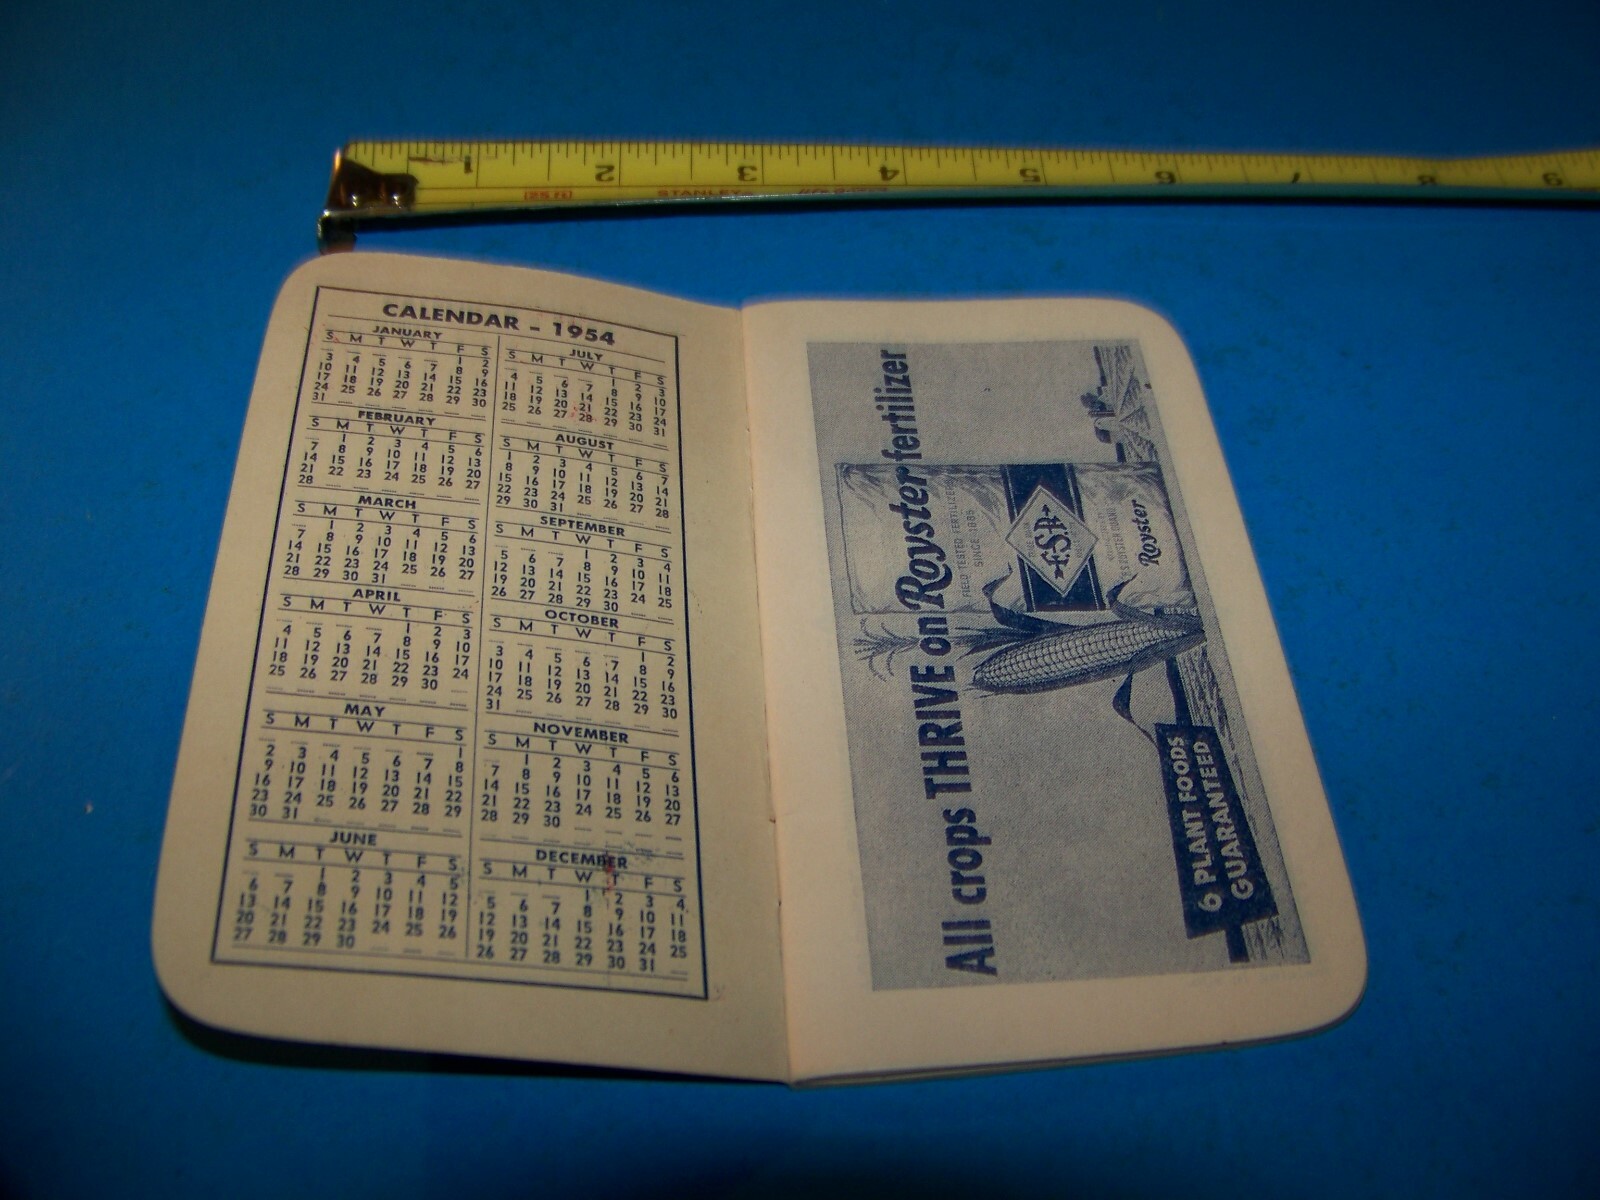 1 2 3 4 5 6 7 8 9
25 ft STANLEY
CALENDAR - 1954
JANUARY
S M T W T F S
1 2
3 4 5 6 7 8 9
10 11 12 13 14 15 16
17 18 19 20 21 22 23
24 25 26 27 28 29 30
31
FEBRUARY
S M T W T F S
1 2 3 4 5 6
7 8 9 10 11 12 13
14 15 16 17 18 19 20
21 22 23 24 25 26 27
28
MARCH
S M T W T F S
1 2 3 4 5 6
7 8 9 10 11 12 13
14 15 16 17 18 19 20
21 22 23 24 25 26 27
28 29 30 31
APRIL
S M T W T F S
1 2 3
4 5 6 7 8 9 10
11 12 13 14 15 16 17
18 19 20 21 22 23 24
25 26 27 28 29 30
MAY
S M T W T F S
1
2 3 4 5 6 7 8
9 10 11 12 13 14 15
16 17 18 19 20 21 22
23 24 25 26 27 28 29
30 31
JUNE
S M T W T F S
1 2 3 4 5
6 7 8 9 10 11 12
13 14 15 16 17 18 19
20 21 22 23 24 25 26
27 28 29 30
JULY
S M T W T F S
1 2 3
4 5 6 7 8 9 10
11 12 13 14 15 16 17
18 19 20 21 22 23 24
25 26 27 28 29 30 31
AUGUST
S M T W T F S
1 2 3 4 5 6 7
8 9 10 11 12 13 14
15 16 17 18 19 20 21
22 23 24 25 26 27 28
29 30 31
SEPTEMBER
S M T W T F S
1 2 3 4
5 6 7 8 9 10 11
12 13 14 15 16 17 18
19 20 21 22 23 24 25
26 27 28 29 30
OCTOBER
S M T W T F S
1 2
3 4 5 6 7 8 9
10 11 12 13 14 15 16
17 18 19 20 21 22 23
24 25 26 27 28 29 30
31
NOVEMBER
S M T W T F S
1 2 3 4 5 6
7 8 9 10 11 12 13
14 15 16 17 18 19 20
21 22 23 24 25 26 27
28 29 30
DECEMBER
S M T W T F S
1 2 3 4
5 6 7 8 9 10 11
12 13 14 15 16 17 18
19 20 21 22 23 24 25
26 27 28 29 30 31
All crops THRIVE on Royster fertilizer
FIELD TESTED FERTILIZER
SINCE 1885
F.S.R.
Royster
6 PLANT FOODS
GUARANTEED